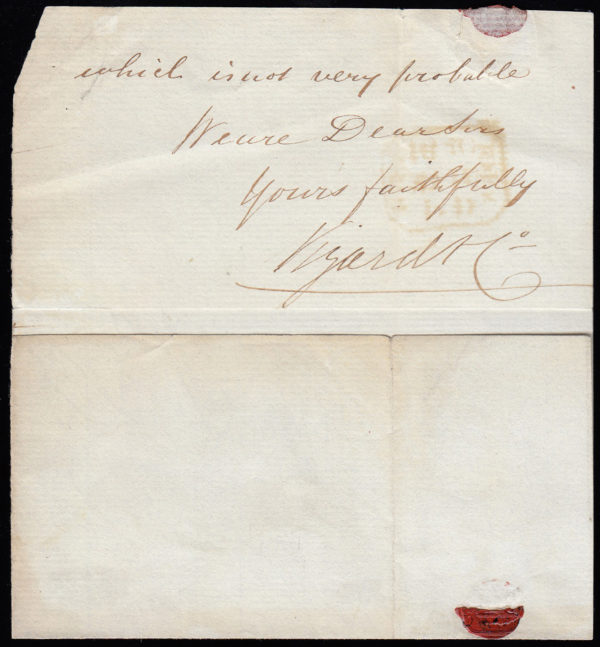 which is not very probable
We are Dear Sirs
Yours faithfully
Vizard & Co